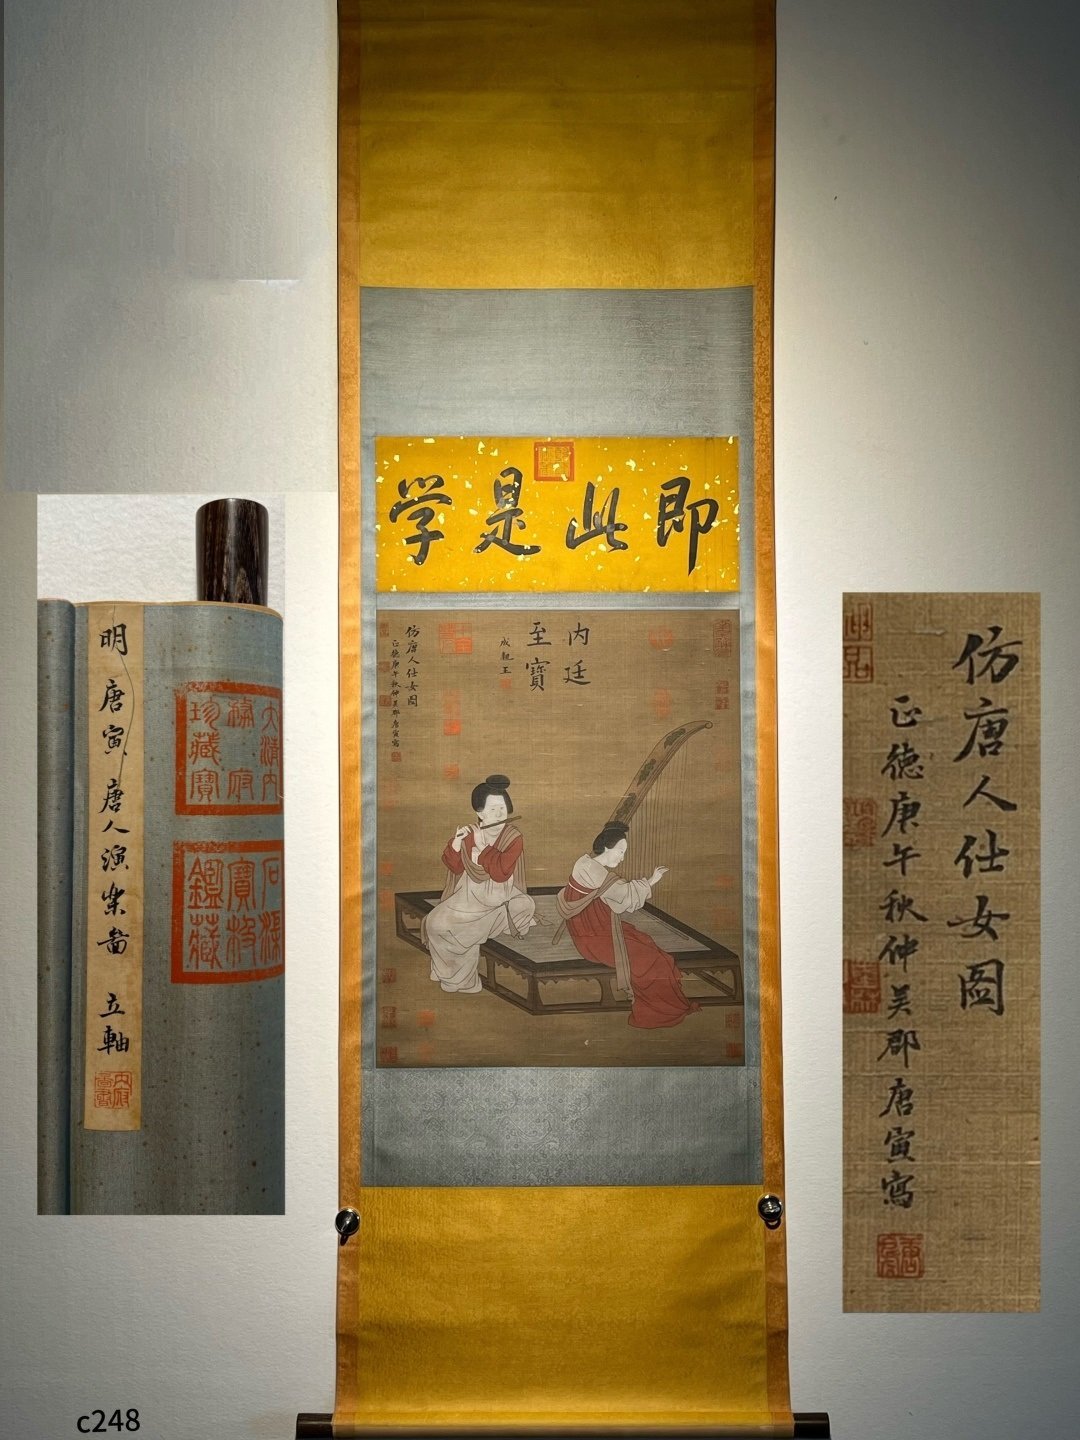 即此是学
内廷
至寶
成親王
仿唐人仕女圖
正德庚午秋仲吴郡唐寅寫
明 唐寅 唐人演樂啚 立軸
大清内
務府
珍藏寶
石渠
寶笈
鑑藏
仿唐人仕女圖
正德庚午秋仲吴郡唐寅寫
c248